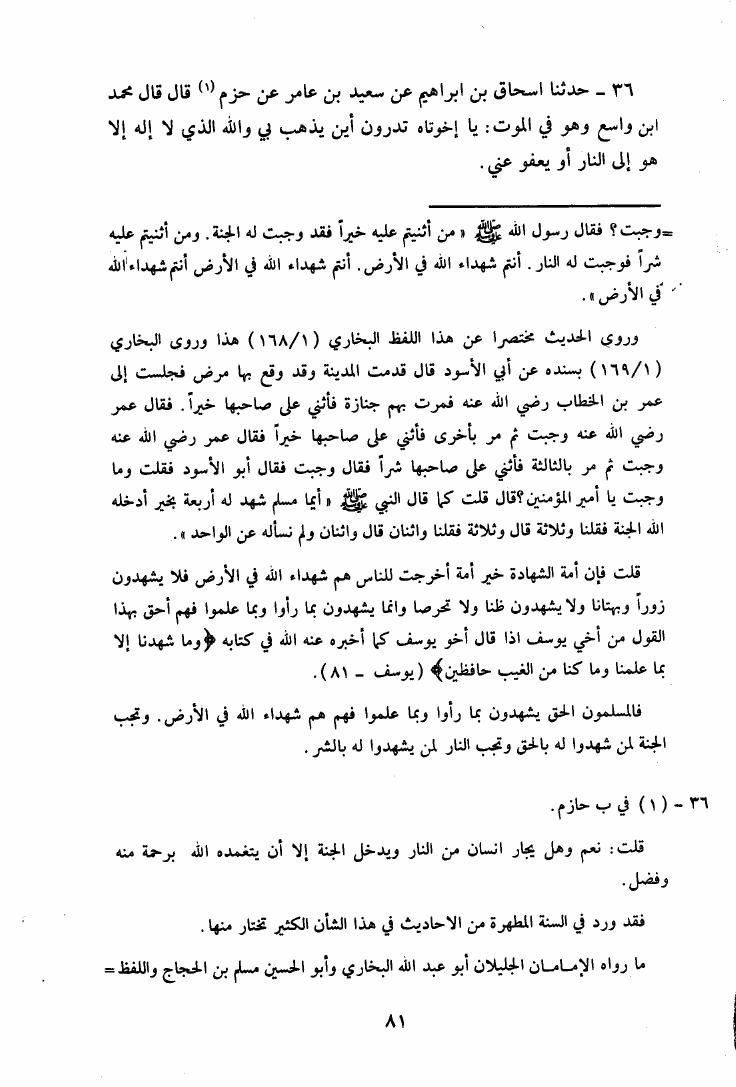 ٣٦ - حدثنا اسحاق بن ابراهيم عن سعيد بن عامر عن حزم (١) قال قال محمد
ابن واسع وهو في الموت: يا إخوتاه تدرون أين يذهب بي والله الذي لا إله إلا
هو إلى النار أو يعفو عني.
=وجبت؟ فقال رسول الله ﷺ « من أثنيتم عليه خيراً فقد وجبت له الجنة. ومن أثنيتم عليه
شراً فوجبت له النار. أنتم شهداء الله في الأرض. أنتم شهداء الله في الأرض أنتم شهداء الله
في الأرض ».
وروي الحديث مختصرا عن هذا اللفظ البخاري (١٦٨/١) هذا وروى البخاري
(١٦٩/١) بسنده عن أبي الأسود قال قدمت المدينة وقد وقع بها مرض فجلست إلى
عمر بن الخطاب رضي الله عنه فمرت بهم جنازة فأثني على صاحبها خيراً. فقال عمر
رضي الله عنه وجبت ثم مر بأخرى فأثني على صاحبها خيراً فقال عمر رضي الله عنه
وجبت ثم مر بالثالثة فأثني على صاحبها شراً فقال وجبت فقال أبو الأسود فقلت وما
وجبت يا أمير المؤمنين؟ قال قلت كما قال النبي ﷺ « أيما مسلم شهد له أربعة بخير أدخله
الله الجنة فقلنا وثلاثة قال وثلاثة فقلنا واثنان قال واثنان ولم نسأله عن الواحد ».
قلت فإن أمة الشهادة خير أمة أخرجت للناس هم شهداء الله في الأرض فلا يشهدون
زوراً وبهتانا ولا يشهدون ظنا ولا تخرصا وانما يشهدون بما رأوا وبما علموا فهم أحق بهذا
القول من أخي يوسف اذا قال أخو يوسف كما أخبره عنه الله في كتابه ﴿وما شهدنا إلا
بما علمنا وما كنا من الغيب حافظين﴾ (يوسف - ٨١).
فالمسلمون الحق يشهدون بما رأوا وبما علموا فهم هم شهداء الله في الأرض. وتجب
الجنة لمن شهدوا له بالحق وتجب النار لمن يشهدوا له بالشر.
٣٦ - (١) في ب حازم.
قلت: نعم وهل يجار انسان من النار ويدخل الجنة إلا أن يتغمده الله برحمة منه
وفضل.
فقد ورد في السنة المطهرة من الاحاديث في هذا الشأن الكثير تختار منها.
ما رواه الإمامان الجليلان أبو عبد الله البخاري وأبو الحسين مسلم بن الحجاج واللفظ=
٨١